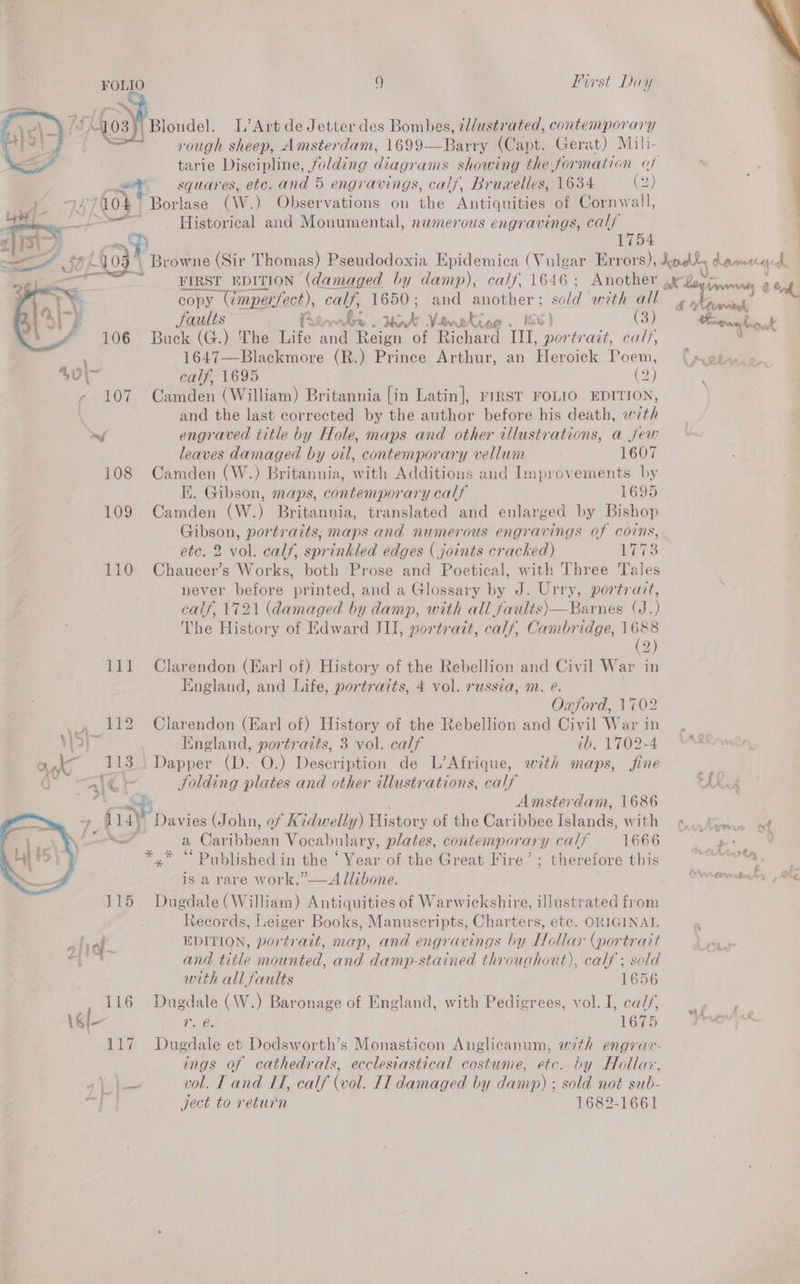 FOLIO 9 First Day
103 Blondel. L'Art de Jetter des Bombes, illustrated, contemporary
rough sheep, Amsterdam, 1699—Barry (Capt. Gerat) Mili-
tarie Discipline, folding diagrams showing the formation of
squares, etc. and 5 engravings, calf, Bruxelles, 1634 (2)
104 Borlase (W.) Observations on the Antiquities of Cornwall,
Historical and Monumental, numerous engravings, calf
1754
Browne (Sir Thomas) Pseudodoxia Epidemica (Vulgar Errors), badly damaged
FIRST EDITION (damaged by damp), calf, 1646; Another at beginning & end
copy (imperfect), calf, 1650; and another; sold with all
faults (3) throughout
106 Buck (G.) The Life and Reign of Richard III, portrait, calf,
1647—Blackmore (R.) Prince Arthur, an Heroick Poem,
calf, 1695 (2)
107 Camden (William) Britannia [in Latin], FIRST FOLIO EDITION,
and the last corrected by the author before his death, with
engraved title by Hole, maps and other illustrations, a few
leaves damaged by oil, contemporary vellum 1607
108 Camden (W.) Britannia, with Additions and Improvements by
E. Gibson, maps, contemporary calf 1695
109 Camden (W.) Britannia, translated and enlarged by Bishop
Gibson, portraits, maps and numerous engravings of coins,
etc. 2 vol. calf, sprinkled edges (joints cracked) 1773
110 Chaucer's Works, both Prose and Poetical, with Three Tales
never before printed, and a Glossary by J. Urry, portrait,
calf, 1721 (damaged by damp, with all faults)—Barnes (J.)
The History of Edward III, portrait, calf, Cambridge, 1688
(2)
111 Clarendon (Earl of) History of the Rebellion and Civil War in
England, and Life, portraits, 4 vol. russia, m. e.
Oxford, 1702
112 Clarendon (Earl of) History of the Rebellion and Civil War in
England, portraits, 3 vol. calf ib. 1702-4
113 Dapper (D. O.) Description de L'Afrique, with maps, fine
folding plates and other illustrations, calf
Amsterdam, 1686
114 Davies (John, of Kidwelly) History of the Caribbee Islands, with
a Caribbean Vocabulary, plates, contemporary calf 1666
*** "Published in the 'Year of the Great Fire'; therefore this
is a rare work."—Allibone.
115 Dugdale (William) Antiquities of Warwickshire, illustrated from
Records, Leiger Books, Manuscripts, Charters, etc. ORIGINAL
EDITION, portrait, map, and engravings by Hollar (portrait
and title mounted, and damp-stained throughout), calf; sold
with all faults 1656
116 Dugdale (W.) Baronage of England, with Pedigrees, vol. I, calf,
r. e. 1675
117 Dugdale et Dodsworth's Monasticon Anglicanum, with engrav-
ings of cathedrals, ecclesiastical costume, etc. by Hollar,
vol. I and II, calf (vol. II damaged by damp); sold not sub-
ject to return 1682-1661